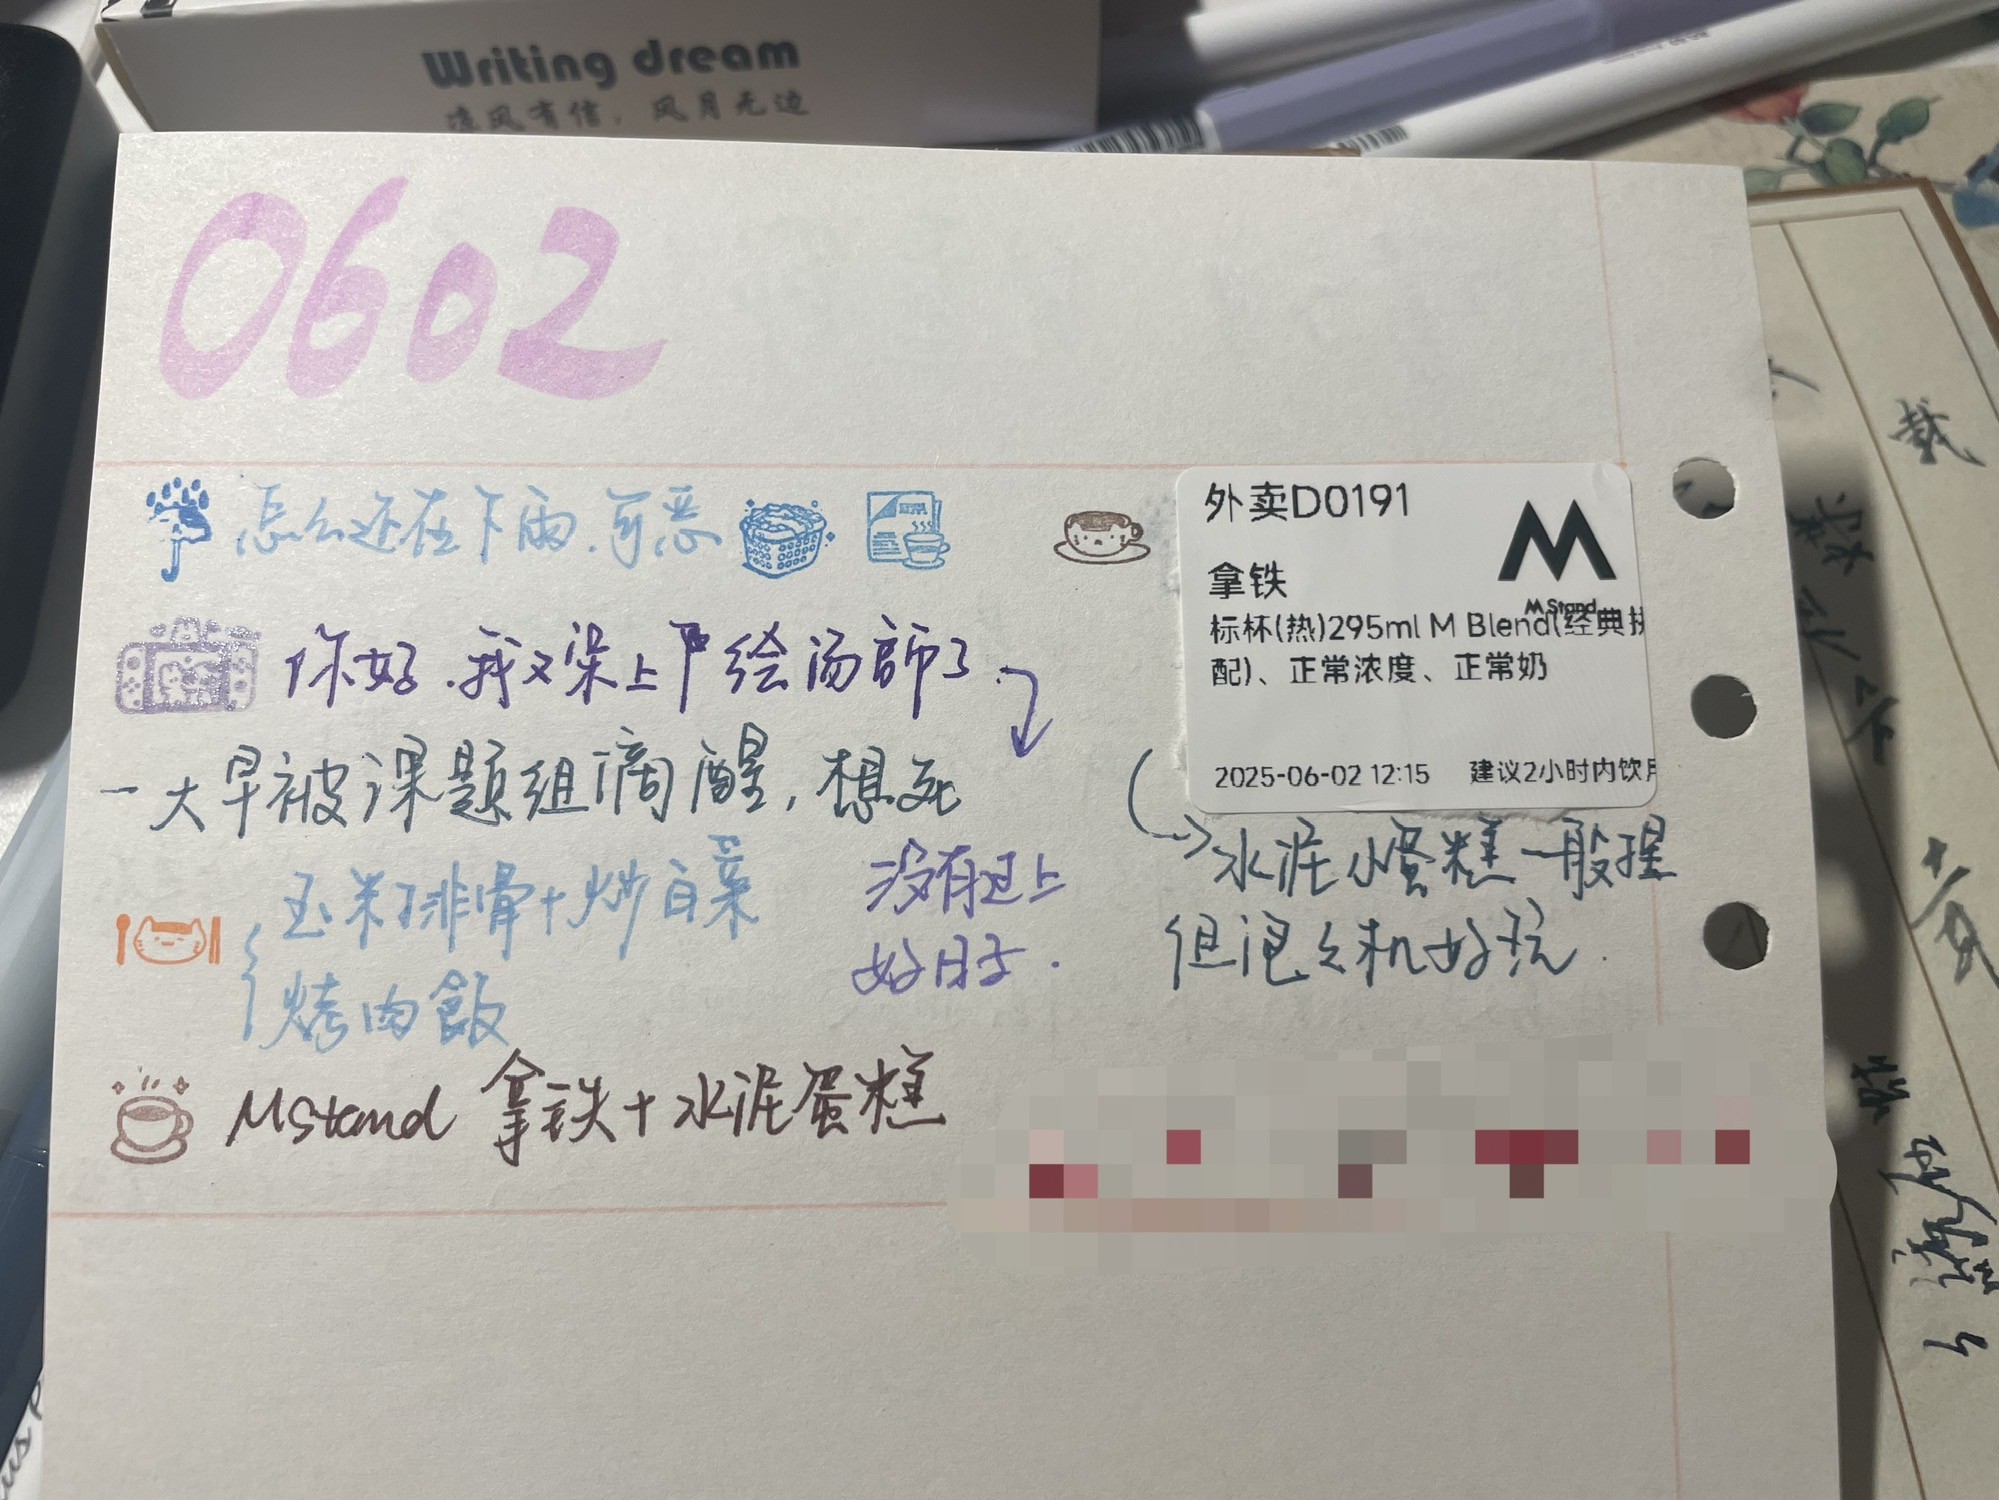 Writing dream
清风有信，风月无边
0602
怎么还在下雨.可恶
你好.我又染上严绘汤师了
一大早被课题组滴醒，想死
玉米排骨+炒白菜
烤肉飯
没有过上
好日子.
MStand 拿铁+水泥蛋糕
外卖D0191
拿铁
M Stand
标杯(热)295ml M Blend(经典拼
配)、正常浓度、正常奶
2025-06-02 12:15 建议2小时内饮用
水泥小蛋糕一般捏
但泡么机好玩.